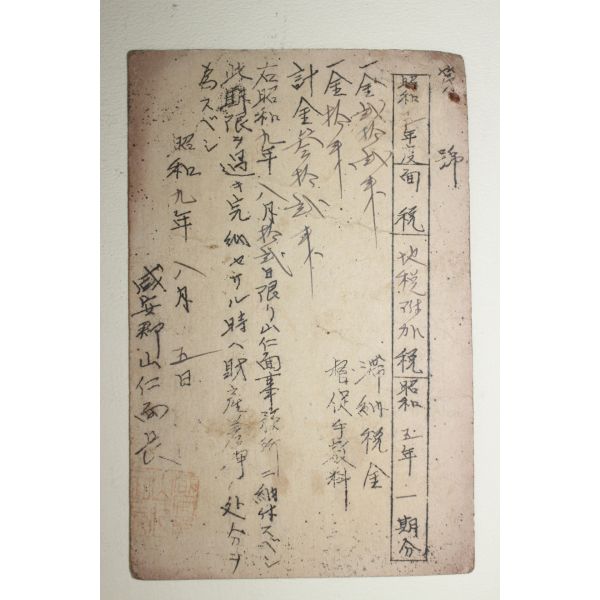 第 號
昭和 年度面税 地税附加税 昭和五年一期分
一金貳拾貳銭 滞納税金
一金拾銭 督促手数料
計金参拾貳銭
右昭和九年八月拾貳日限り山仁面事務所ニ納付スベシ
此期限ヲ過キ完納セサル時ハ財産差押ノ処分ヲ
為スベシ
昭和九年 八月 五日
咸安郡山仁面長